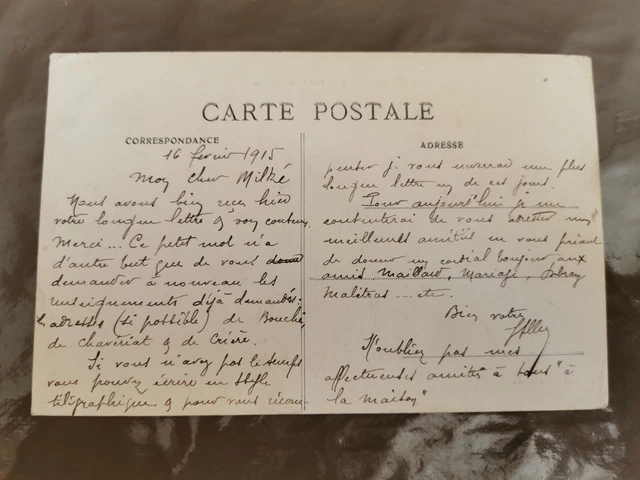 CARTE POSTALE
CORRESPONDANCE
16 fevrier 1915
Mon cher Milké
Nous avons bien reçu hier
votre longue lettre & son contenu.
Merci... Ce petit mot n'a
d'autre but que de vous
demander à nouveau les
renseignements déjà demandés:
les adresses (si possible) de Bouché,
de Chavériat & de Crière.
Si vous n'avez pas le temps
vous pouvez écrire en style
télégraphique & pour vous récom-
ADRESSE
penser je vous enverrai une plus
longue lettre un de ces jours.
Pour aujourd'hui je me
contenterai de vous adresser mes
meilleures amitiés en vous priant
de donner un cordial bonjour aux
amis Maillard, Mariage,
Malétras ... etc.
Bien votre
N'oubliez pas mes
affectueuses amitiés à tous "à
la maison"